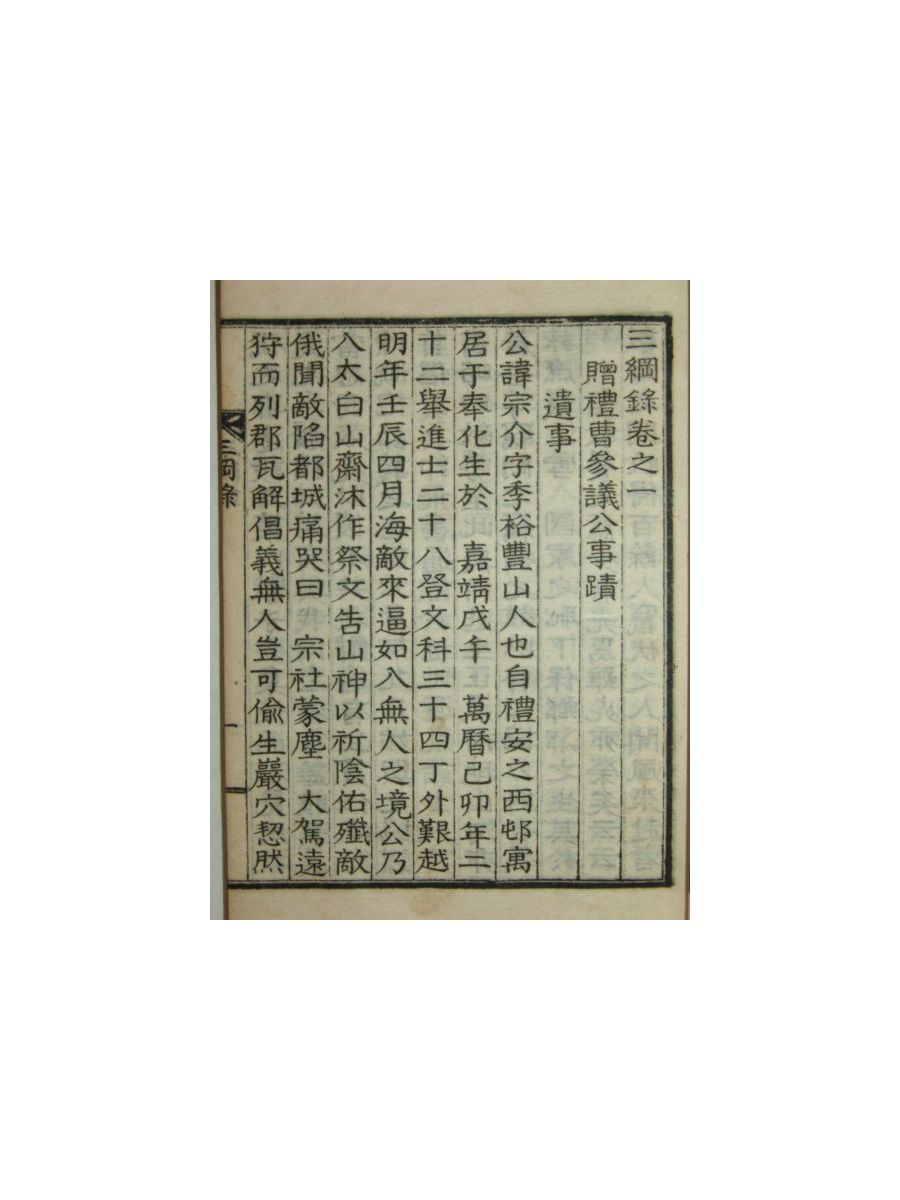 三綱錄卷之一
贈禮曹參議公事蹟
遺事
公諱宗介字季裕豐山人也自禮安之西邨寓
居于奉化生於 嘉靖戊午 萬曆己卯年二
十二舉進士二十八登文科三十四丁外艱越
明年壬辰四月海敵來逼如入無人之境公乃
入太白山齋沐作祭文告山神以祈陰佑殲敵
俄聞敵陷都城痛哭曰 宗社蒙塵 大駕遠
狩而列郡瓦解倡義無人豈可偷生巖穴恝然
三岡錄
一